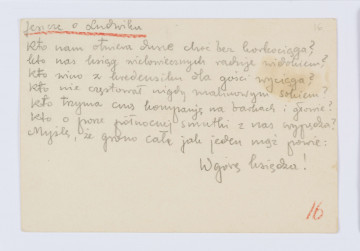 Jeszcze o Ludwiku
16
Kto nam otwiera choć bez korkociąga?
kto nas ksiąg wielowiecznych raduje widokiem?
Kto wino z kredensiku dla gości wyciąga?
Kto nie częstował nigdy malinowym sokiem?
Kto trzyma całą kompanię na barkach i głowie?
Kto o porze północnej smutki z nas wypędza?
Myślę, że grono całe jak jeden mąż powie:
W górę księdza!
16